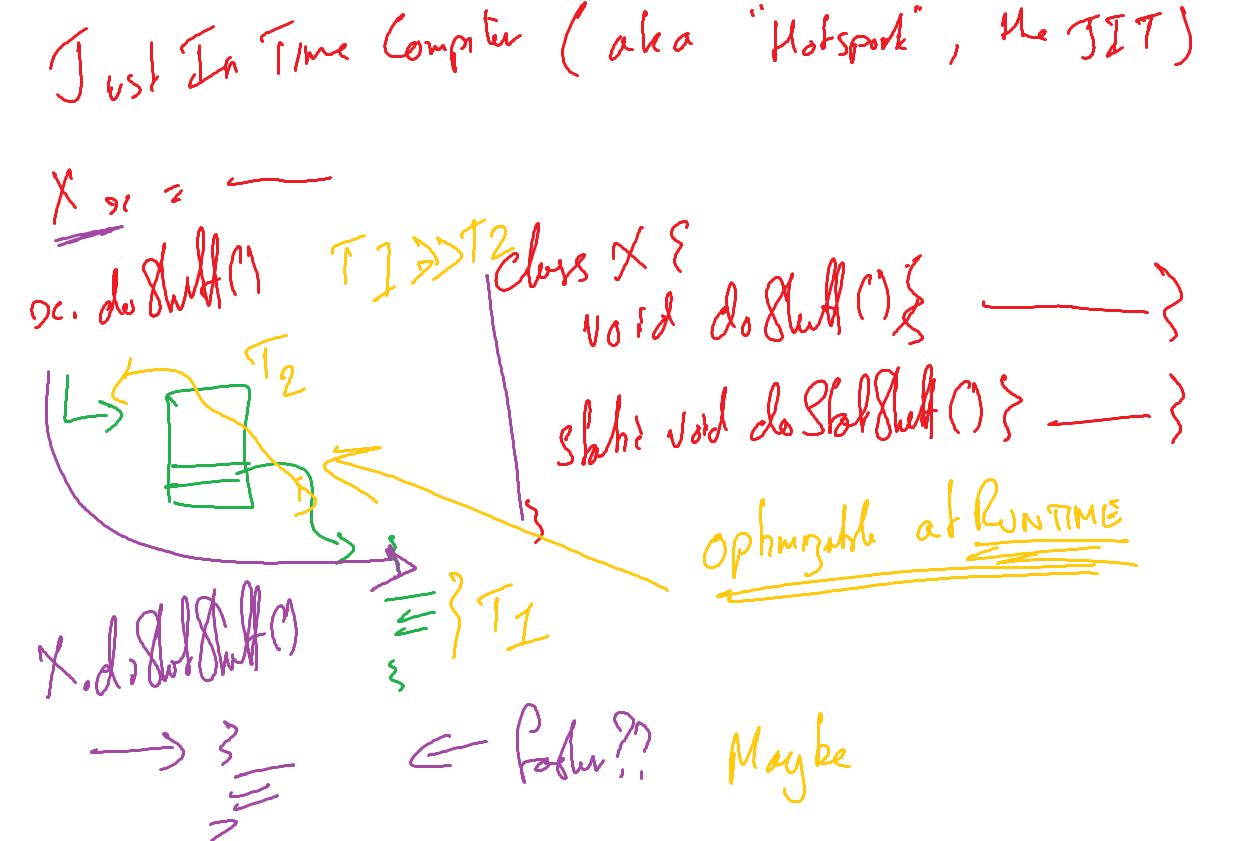 Just In Time Compiler (aka "Hotspot", the JIT)
X x = —
x.doStuff()
T1 >>> T2
class X {
void doStuff() { — }
static void doStatStuff() } — }
}
T2
optimizable at RUNTIME
} T1
X.doStatStuff()
→ }
← faster??
Maybe